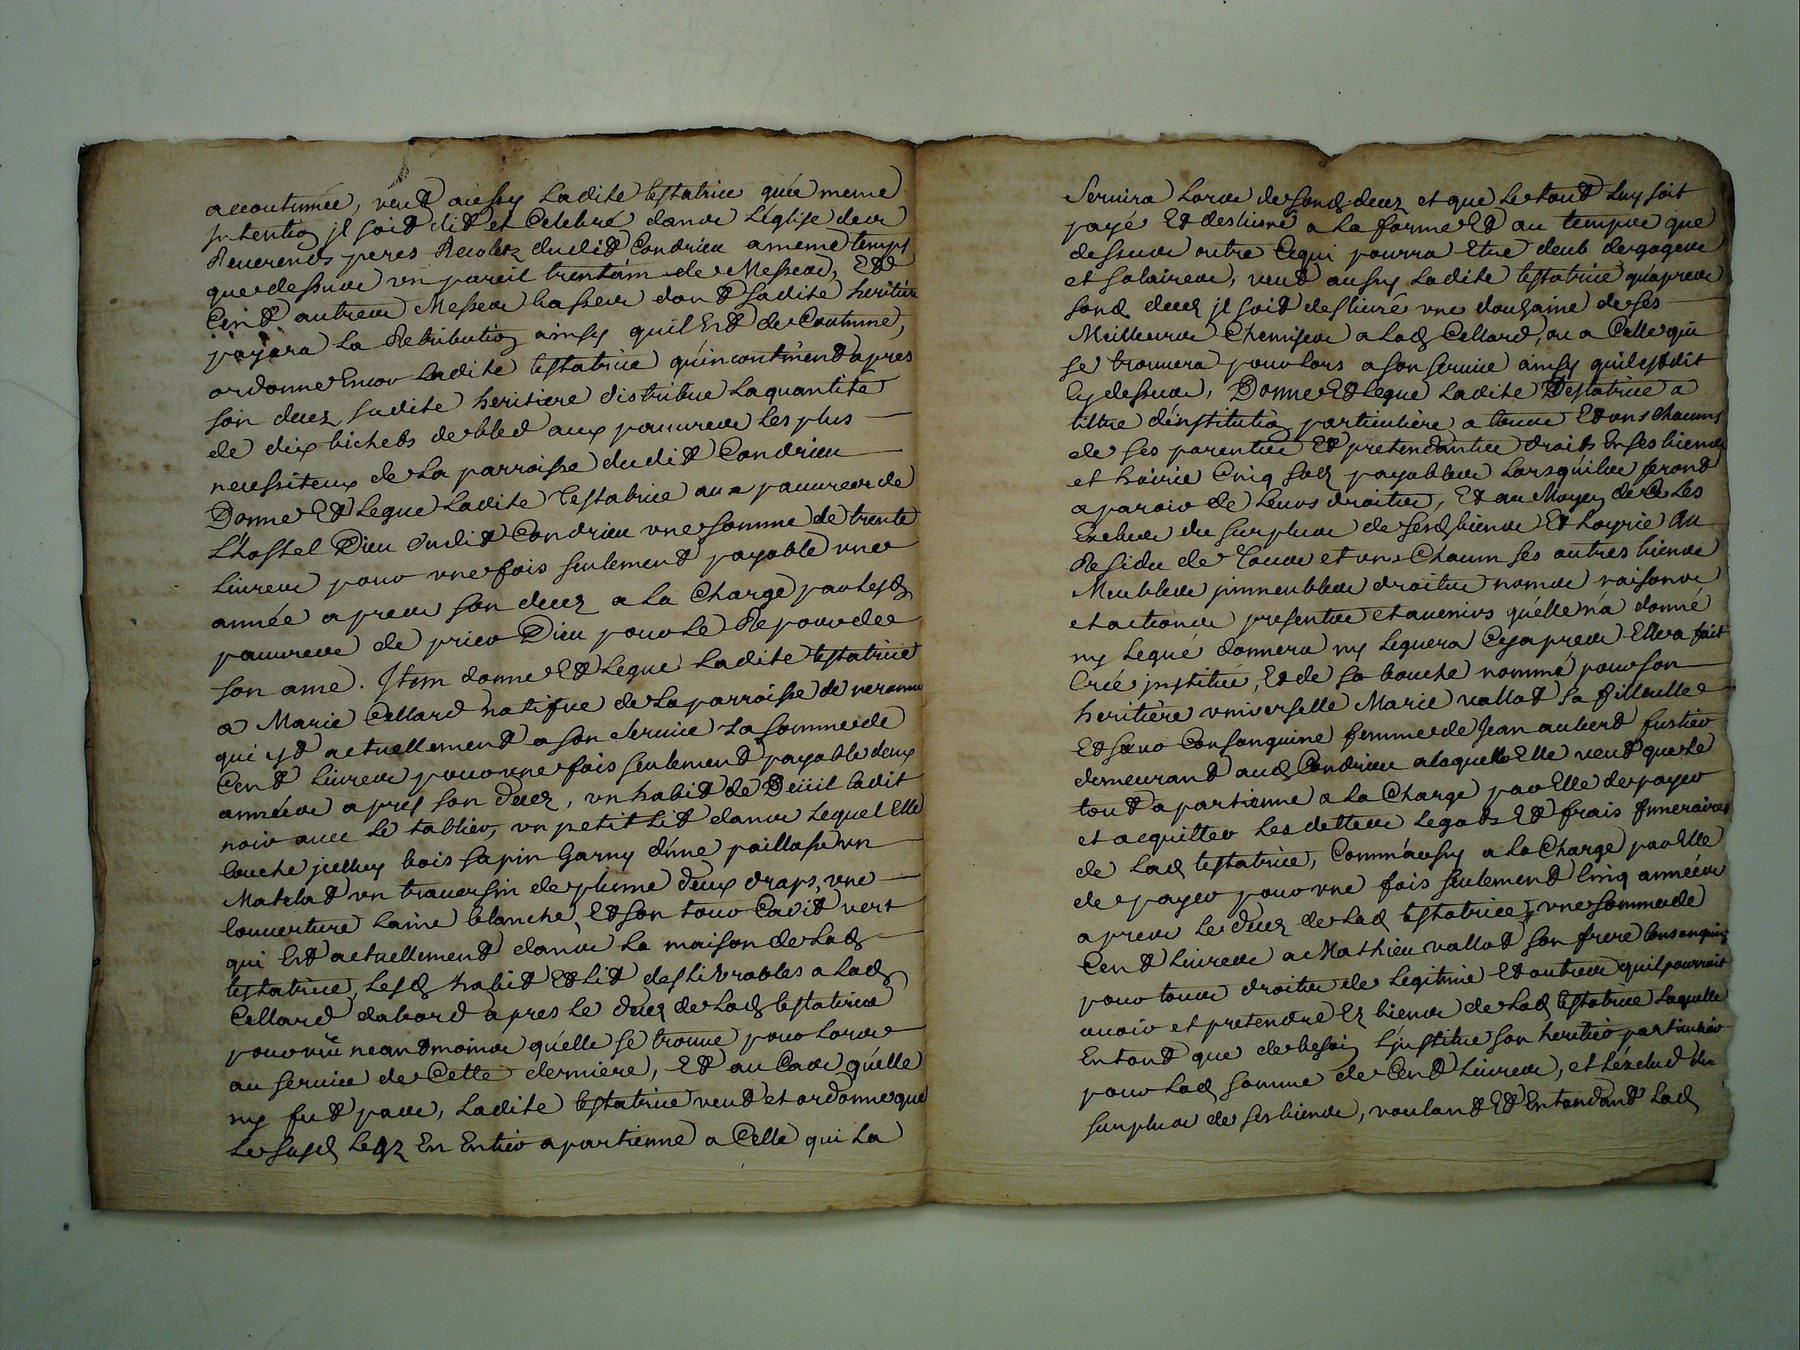 accoutumée, veut aussy ladite testatrice qu'a meme
jntention jl soit dit et Celebré dans l'églize des
Reverends peres Recoletz dudit Condrieu a meme temps
que dessus un pareil trentain de Messes, Et
Cent autres Messes basses dont sadite heritiere
payera la Retribution ainsy quil Est de Coutume,
ordonne Encor ladite testatrice qu'incontinent apres
son decez sadite heritiere distribue la quantité
de dix bichets de bled aux pauvres les plus
necessiteux de la parroisse dudit Condrieu
Donne Et Legue Ladite Testatrice aux pauvres de
L'hostel Dieu dudit Condrieu une somme de trente
Livres pour une fois seulement payable une
année apres son decez a la Charge par lesd
pauvres de prier Dieu pour le Repos de
son ame. Jtem donne Et Legue Ladite testatrice
a Marie Cellard natifve de la parroisse de veranne
qui est actuellement a son service la somme de
Cent Livres pour une fois seulement payable deux
années aprés son decez, un habit de Deüil Cadit
noir avec le tablier, un petit Lit dans lequel Elle
couche jcelluy bois sapin garny d'une paillasse un
Matelat un traversin de plume deux draps, une
couverture laine blanche, Et son tour Cadit vert
qui Est actuellement dans la maison de lad
testatrice, Lesd habit Et Lit deslivrables a lad
Cellard dabord apres le decez de lad testatrice
pourvû neantmoins qu'elle se trouve pour lors
au service de Cette derniere, Et au Cas qu'elle
ny fut pas, Ladite testatrice veut et ordonne que
le susd Legz En Entier apartienne a Celle qui la
Servira lors de sond decez et que le tout luy soit
payé Et deslivré a la forme Et au temps que
dessus outre Ce qui pourra Etre deub de gages
et salaires, veut aussy ladite testatrice qu'apres
sond decez jl soit deslivré une douzaine de ses
Meilleures Chemises a lad Cellard, ou a Celle qui
se trouvera pour lors a son service ainsy quil est dit
Cy dessus, Donne Et Legue Ladite Testatrice a
tiltre d'institution particuliere a tous Et uns chacuns
de ses parents Et pretendants droits En ses biens
et hoirie Cinq sols payables lorsqu'ils feront
aparoir de leurs droits, Et au Moyen de Ce les
Exclus du surplus de sesd biens Et hoyrie Au
Residu de Tous et uns Chacun ses autres biens
Meubles jmmeubles droits noms raisons
et actions presents et avenirs qu'elle n'a donné
ny Legué donnera ny leguera Cy apres Elle a fait
Créé jnstitué, Et de sa bouche nommé pour son
heritiere universelle Marie vallat sa fillieulle
Et sœur Consanguine femme de Jean aubert fustier
demeurant aud Condrieu a laquelle Elle veut que le
tout apartienne a la Charge par Elle de payer
et acquitter les dettes legats Et frais funeraires
de Lad testatrice, Comm'aussy a la Charge par Elle
de payer pour une fois seulement cinq années
apres le decez de lad testatrice, une somme de
Cent Livres a Mathieu vallat son frere consanguin
pour tous droits de Legitime Et autres quil pourroit
avoir et pretendre Ez biens de lad testatrice laquelle
En tant que de besoin l'jnstitue son heritier particulier
pour Lad somme de Cent Livres, et l'éxclud du
surplus de ses biens, voulant Et Entendant Lad